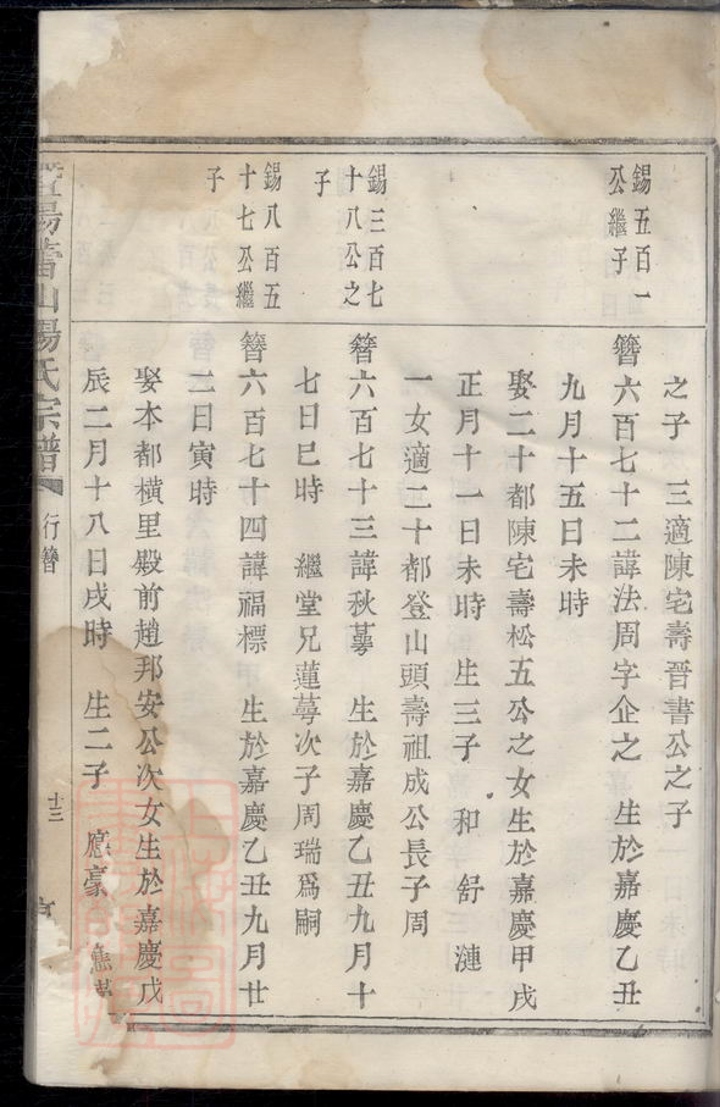 之子 三適陳宅壽晉書公之子
錫五百一
公繼子
簪六百七十二諱法周字企之 生於嘉慶乙丑
九月十五日未時
娶二十都陳宅壽松五公之女生於嘉慶甲戌
正月十一日未時 生三子 和 舒 漣
一女適二十都登山頭壽祖成公長子周
錫三百七
十八公之
子
簪六百七十三諱秋萼 生於嘉慶乙丑九月十
七日巳時 繼堂兄蓮萼次子周瑞為嗣
錫八百五
十七公繼
子
簪六百七十四諱福標 生於嘉慶乙丑九月廿
二日寅時
娶本都橫里殿前趙邦安公次女生於嘉慶戊
辰二月十八日戌時 生二子 應豪
山陽氏宗譜
行簪
十三